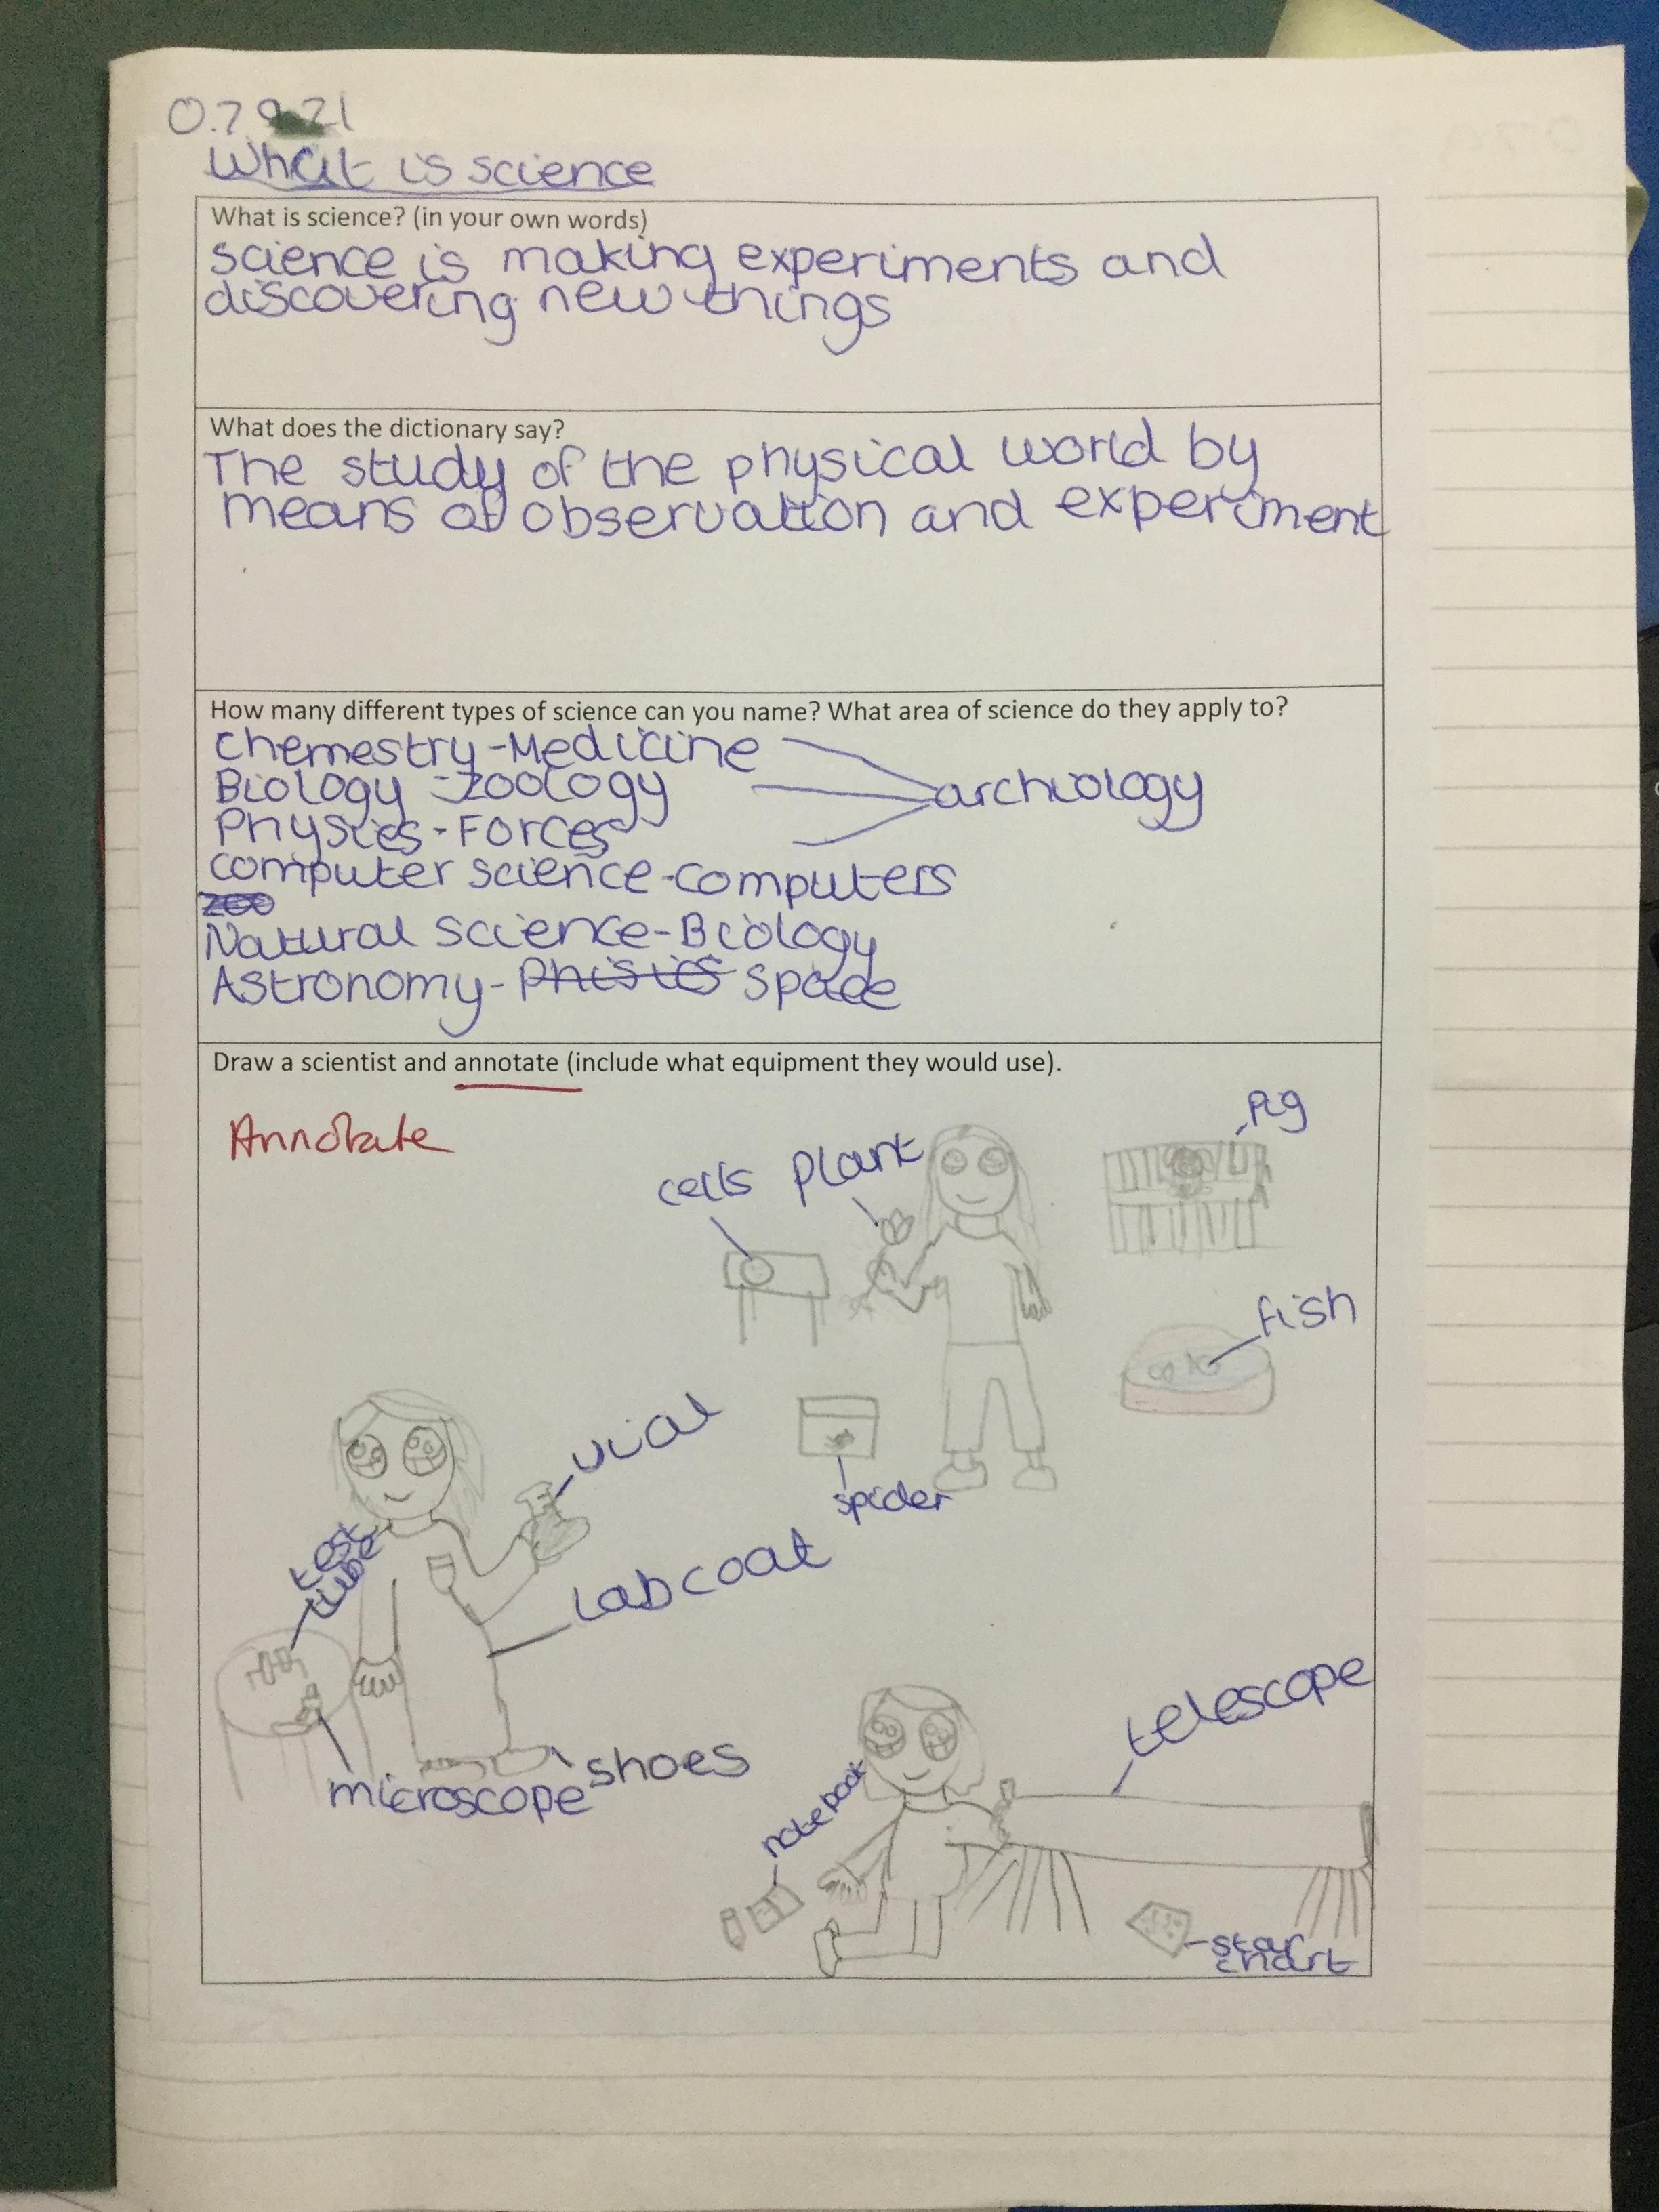 07.9.21
What is science
What is science? (in your own words)
science is making experiments and
discovering new things
What does the dictionary say?
The study of the physical world by
means of observation and experiment
How many different types of science can you name? What area of science do they apply to?
Chemestry-Medicine
Biology - zoology
archiology
Physics-Forces
computer science-computers
zoo
Natural science-Biology
Astronomy- Phisics space
Draw a scientist and annotate (include what equipment they would use).
Annotate
Pig
cells plant
fish
vial
spider
test
tube
Lab coat
telescope
shoes
microscope
note book
star
chart